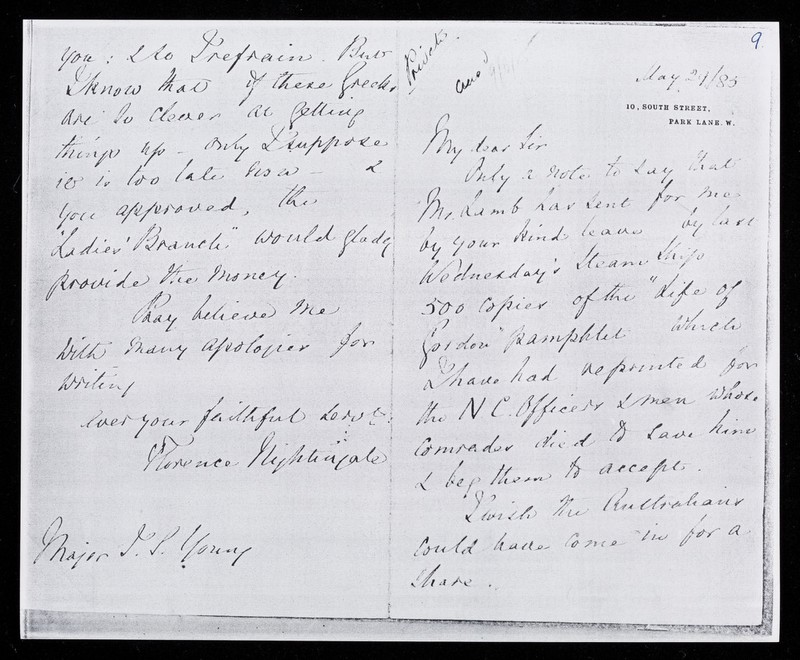 you : & to refrain. But
I know that if these Greeks
are so clever at getting
things up - only I suppose
it is too late now - &
you approved, the
"Ladies' Branch" would gladly
provide the money.
Pray believe me
with many apologies for
writing
ever your faithful servt:
Florence Nightingale
Major J. S. Young
9
Private
May 21/85
10, SOUTH STREET,
PARK LANE. W.
My dear Sir
Only a note to say that
Mr. Lamb has sent for me
by your kind leave by last
Wednesday's Steam Ship
500 copies of the "Life of
Gordon" pamphlet which
I have had reprinted for
the N C. Officers & men whose
comrades died to save him
& beg them to accept.
I wish the Australians
could have come in for a
share.